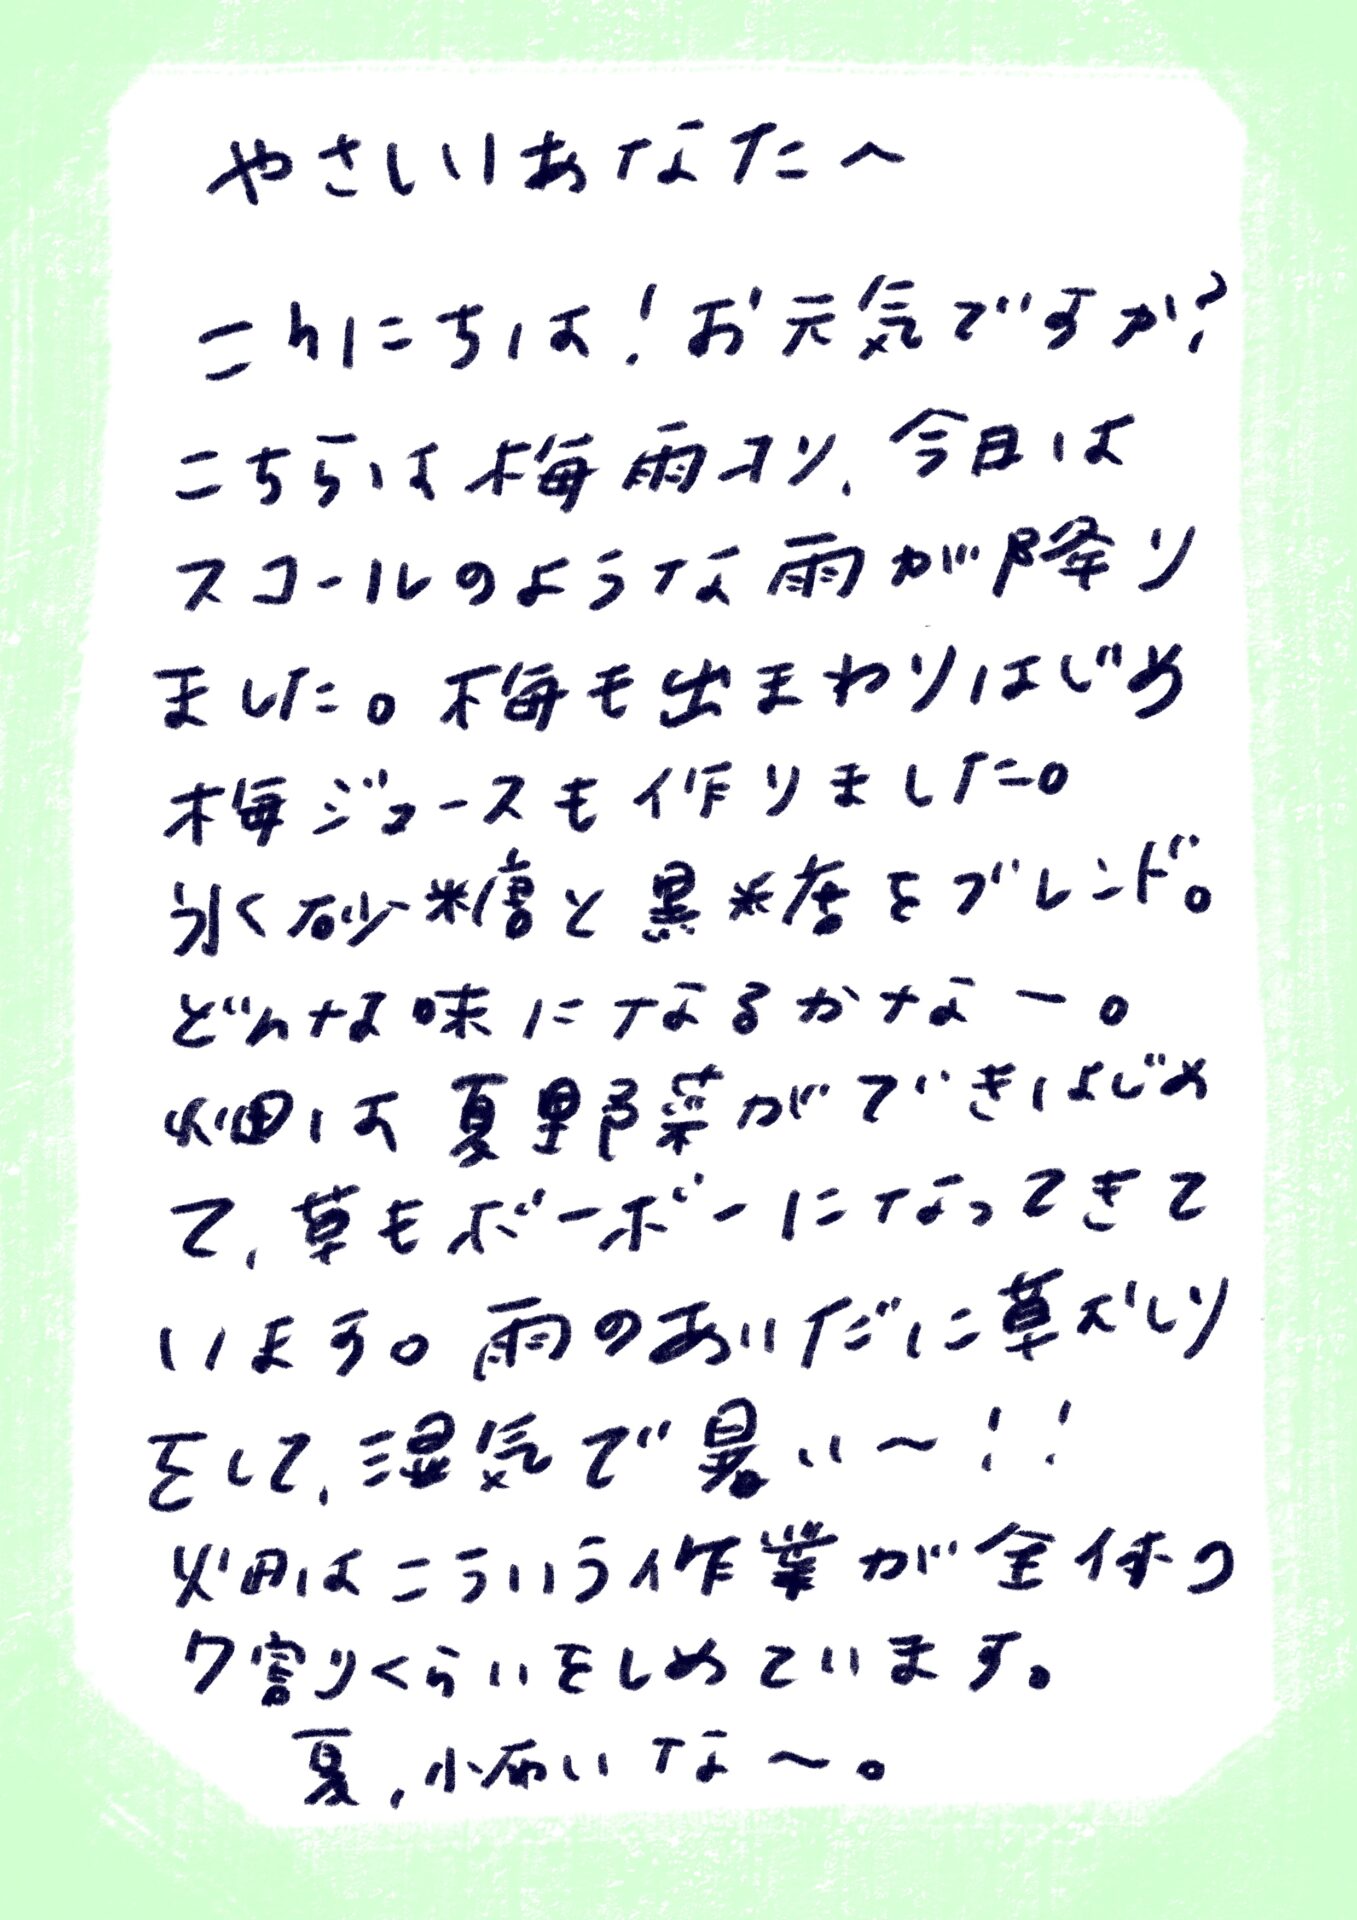 やさしいあなたへ
こんにちは！お元気ですか？
こちらは梅雨入り、今日は
スコールのような雨が降り
ました。梅も出まわりはじめ
梅ジュースも作りました。
氷砂糖と黒糖をブレンド。
どんな味になるかなー。
畑は夏野菜ができはじめ
て、草もボーボーになってきて
います。雨のあいだに草むしり
をして、湿気で暑い〜！！
畑はこういう作業が全体の
7割りくらいをしめています。
夏、怖いな〜。